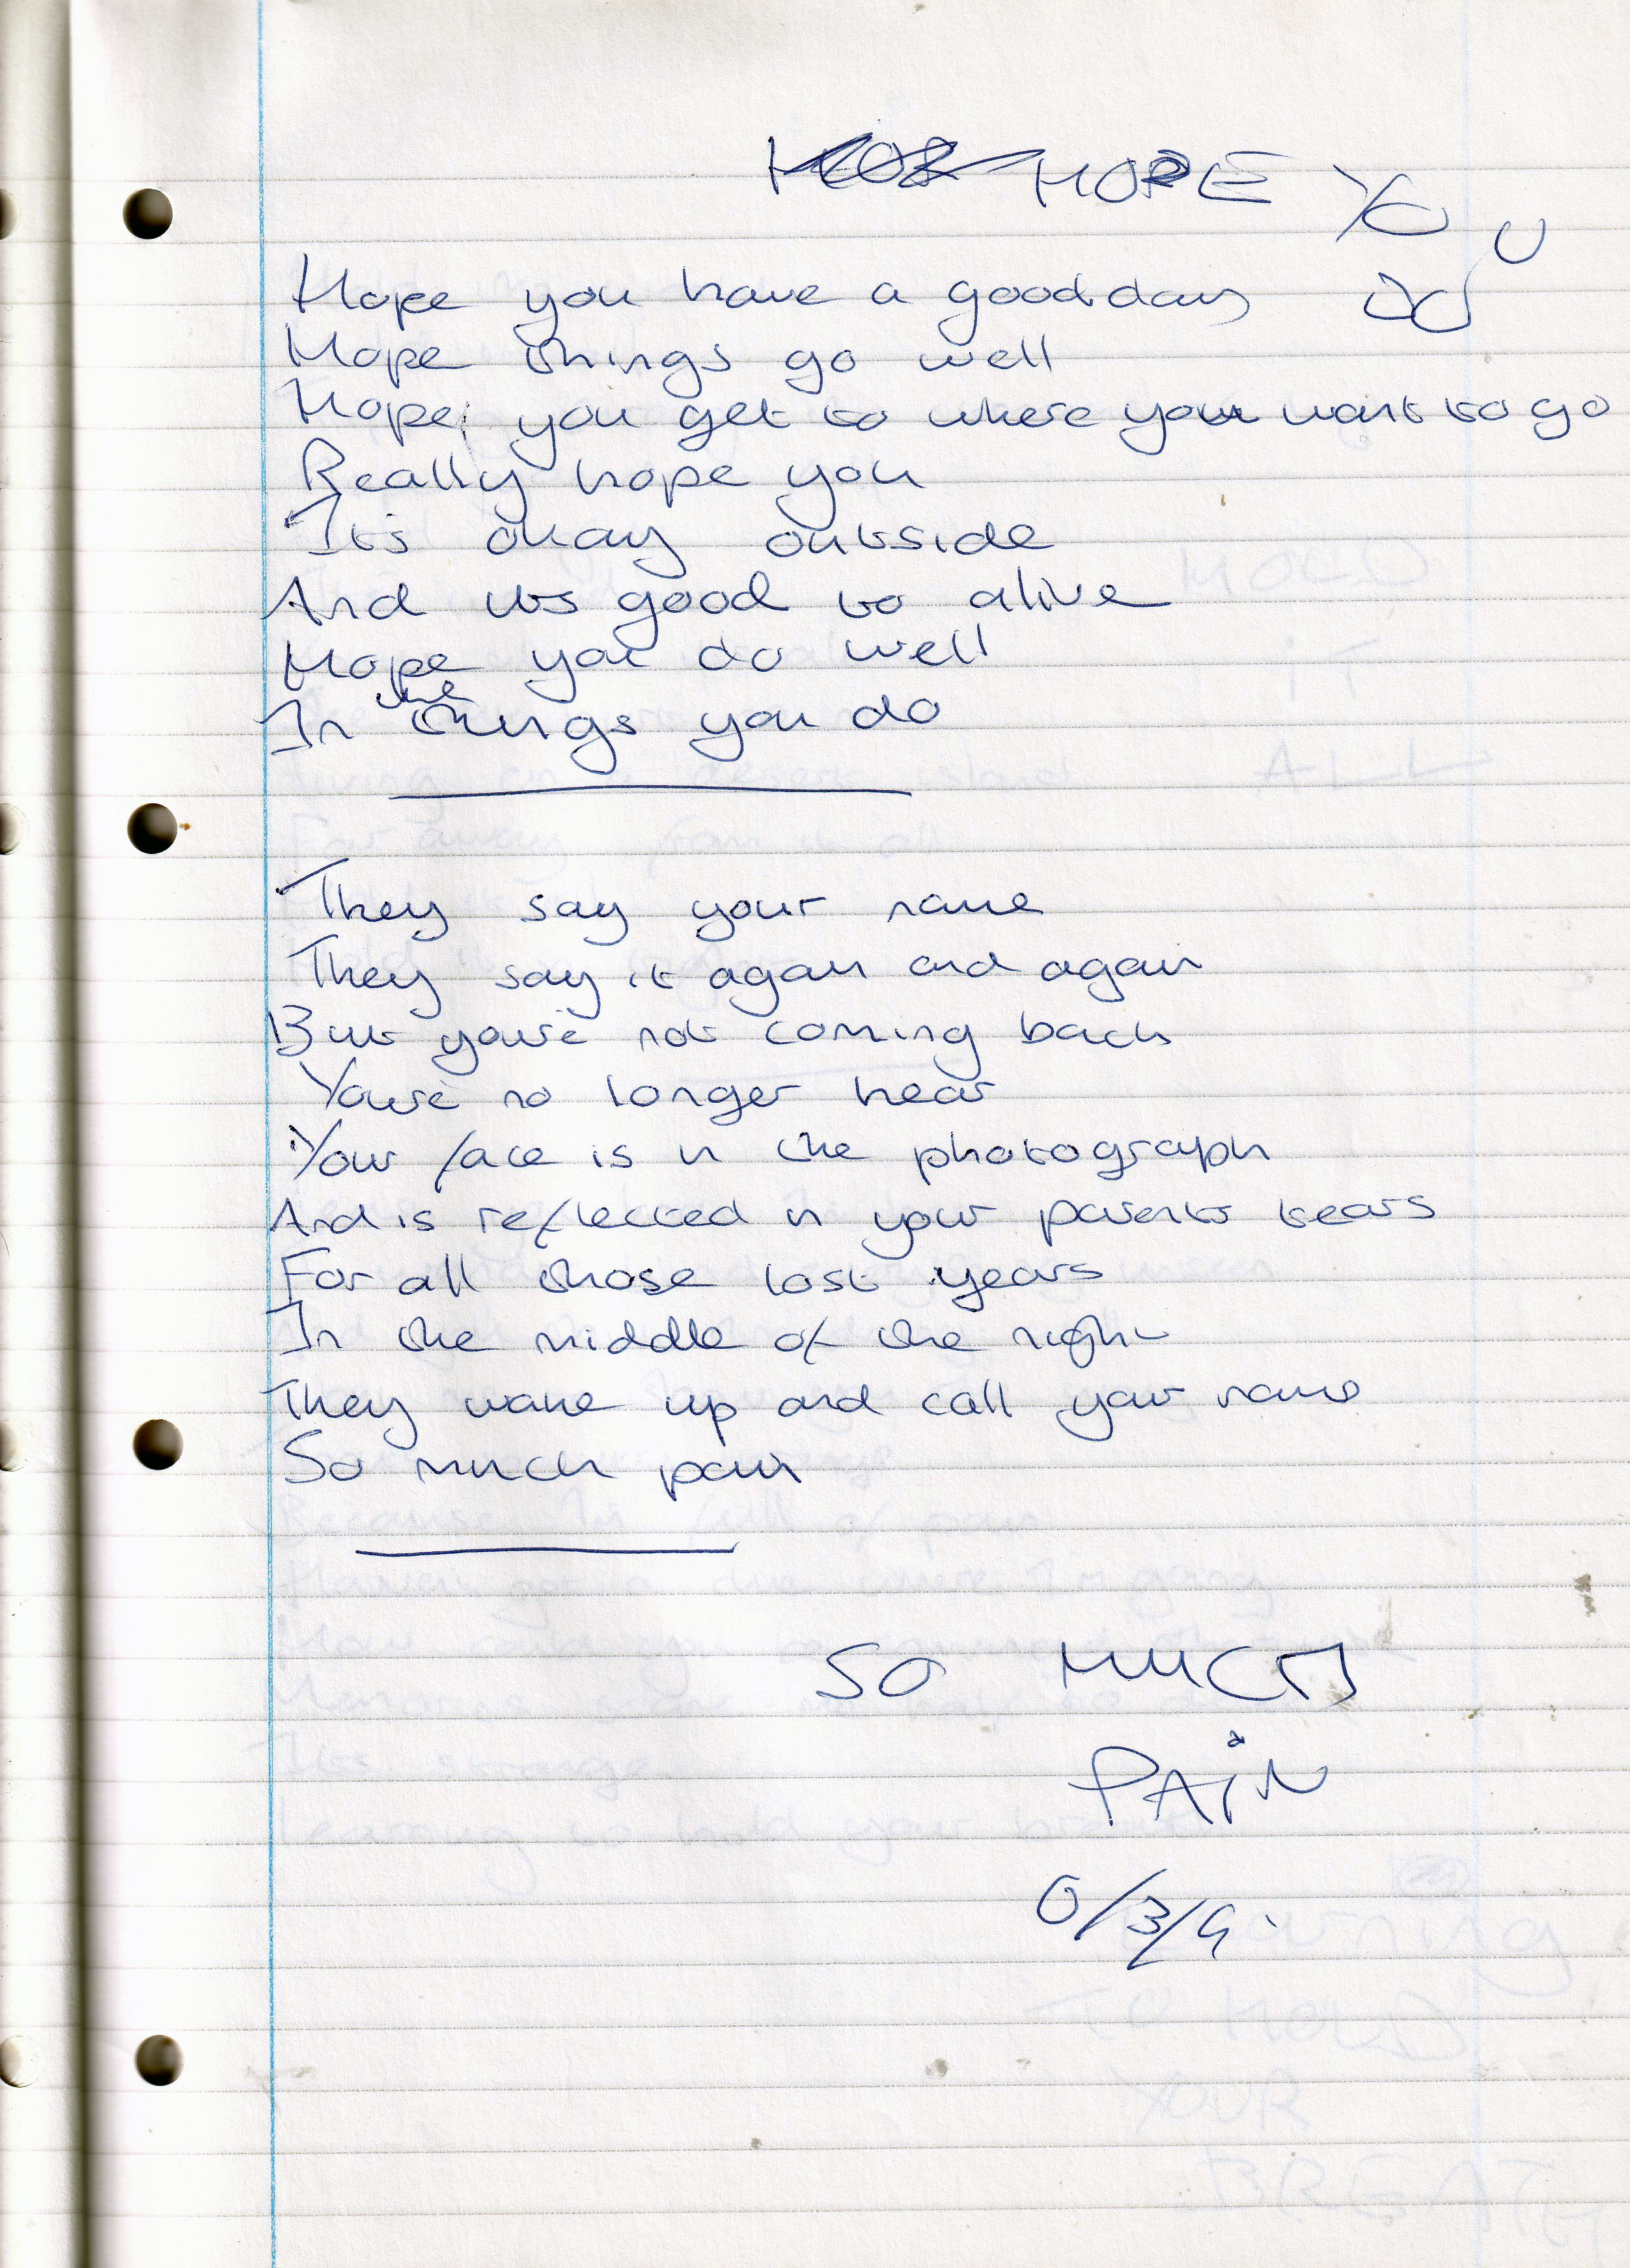 HOPE YOU
DO
Hope you have a good day
Hope things go well
Hope you get to where you want to go
Really hope you
It's okay outside
And its good to alive
Hope you do well
In the things you do
They say your name
They say it again and again
But you're not coming back
You're no longer hear
Your face is in the photograph
And is reflected in your parents tears
For all those lost years
In the middle of the night
They wake up and call your name
So much pain
SO MUCH
PAIN
0/3/9